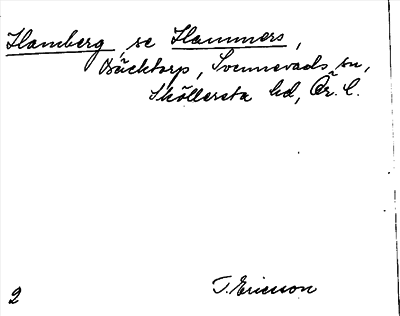 Hamberg, se Hammers,
Bäcktorp, Svennevads sn,
Sköllersta hd, Ör. l.
2
T. Ericsson